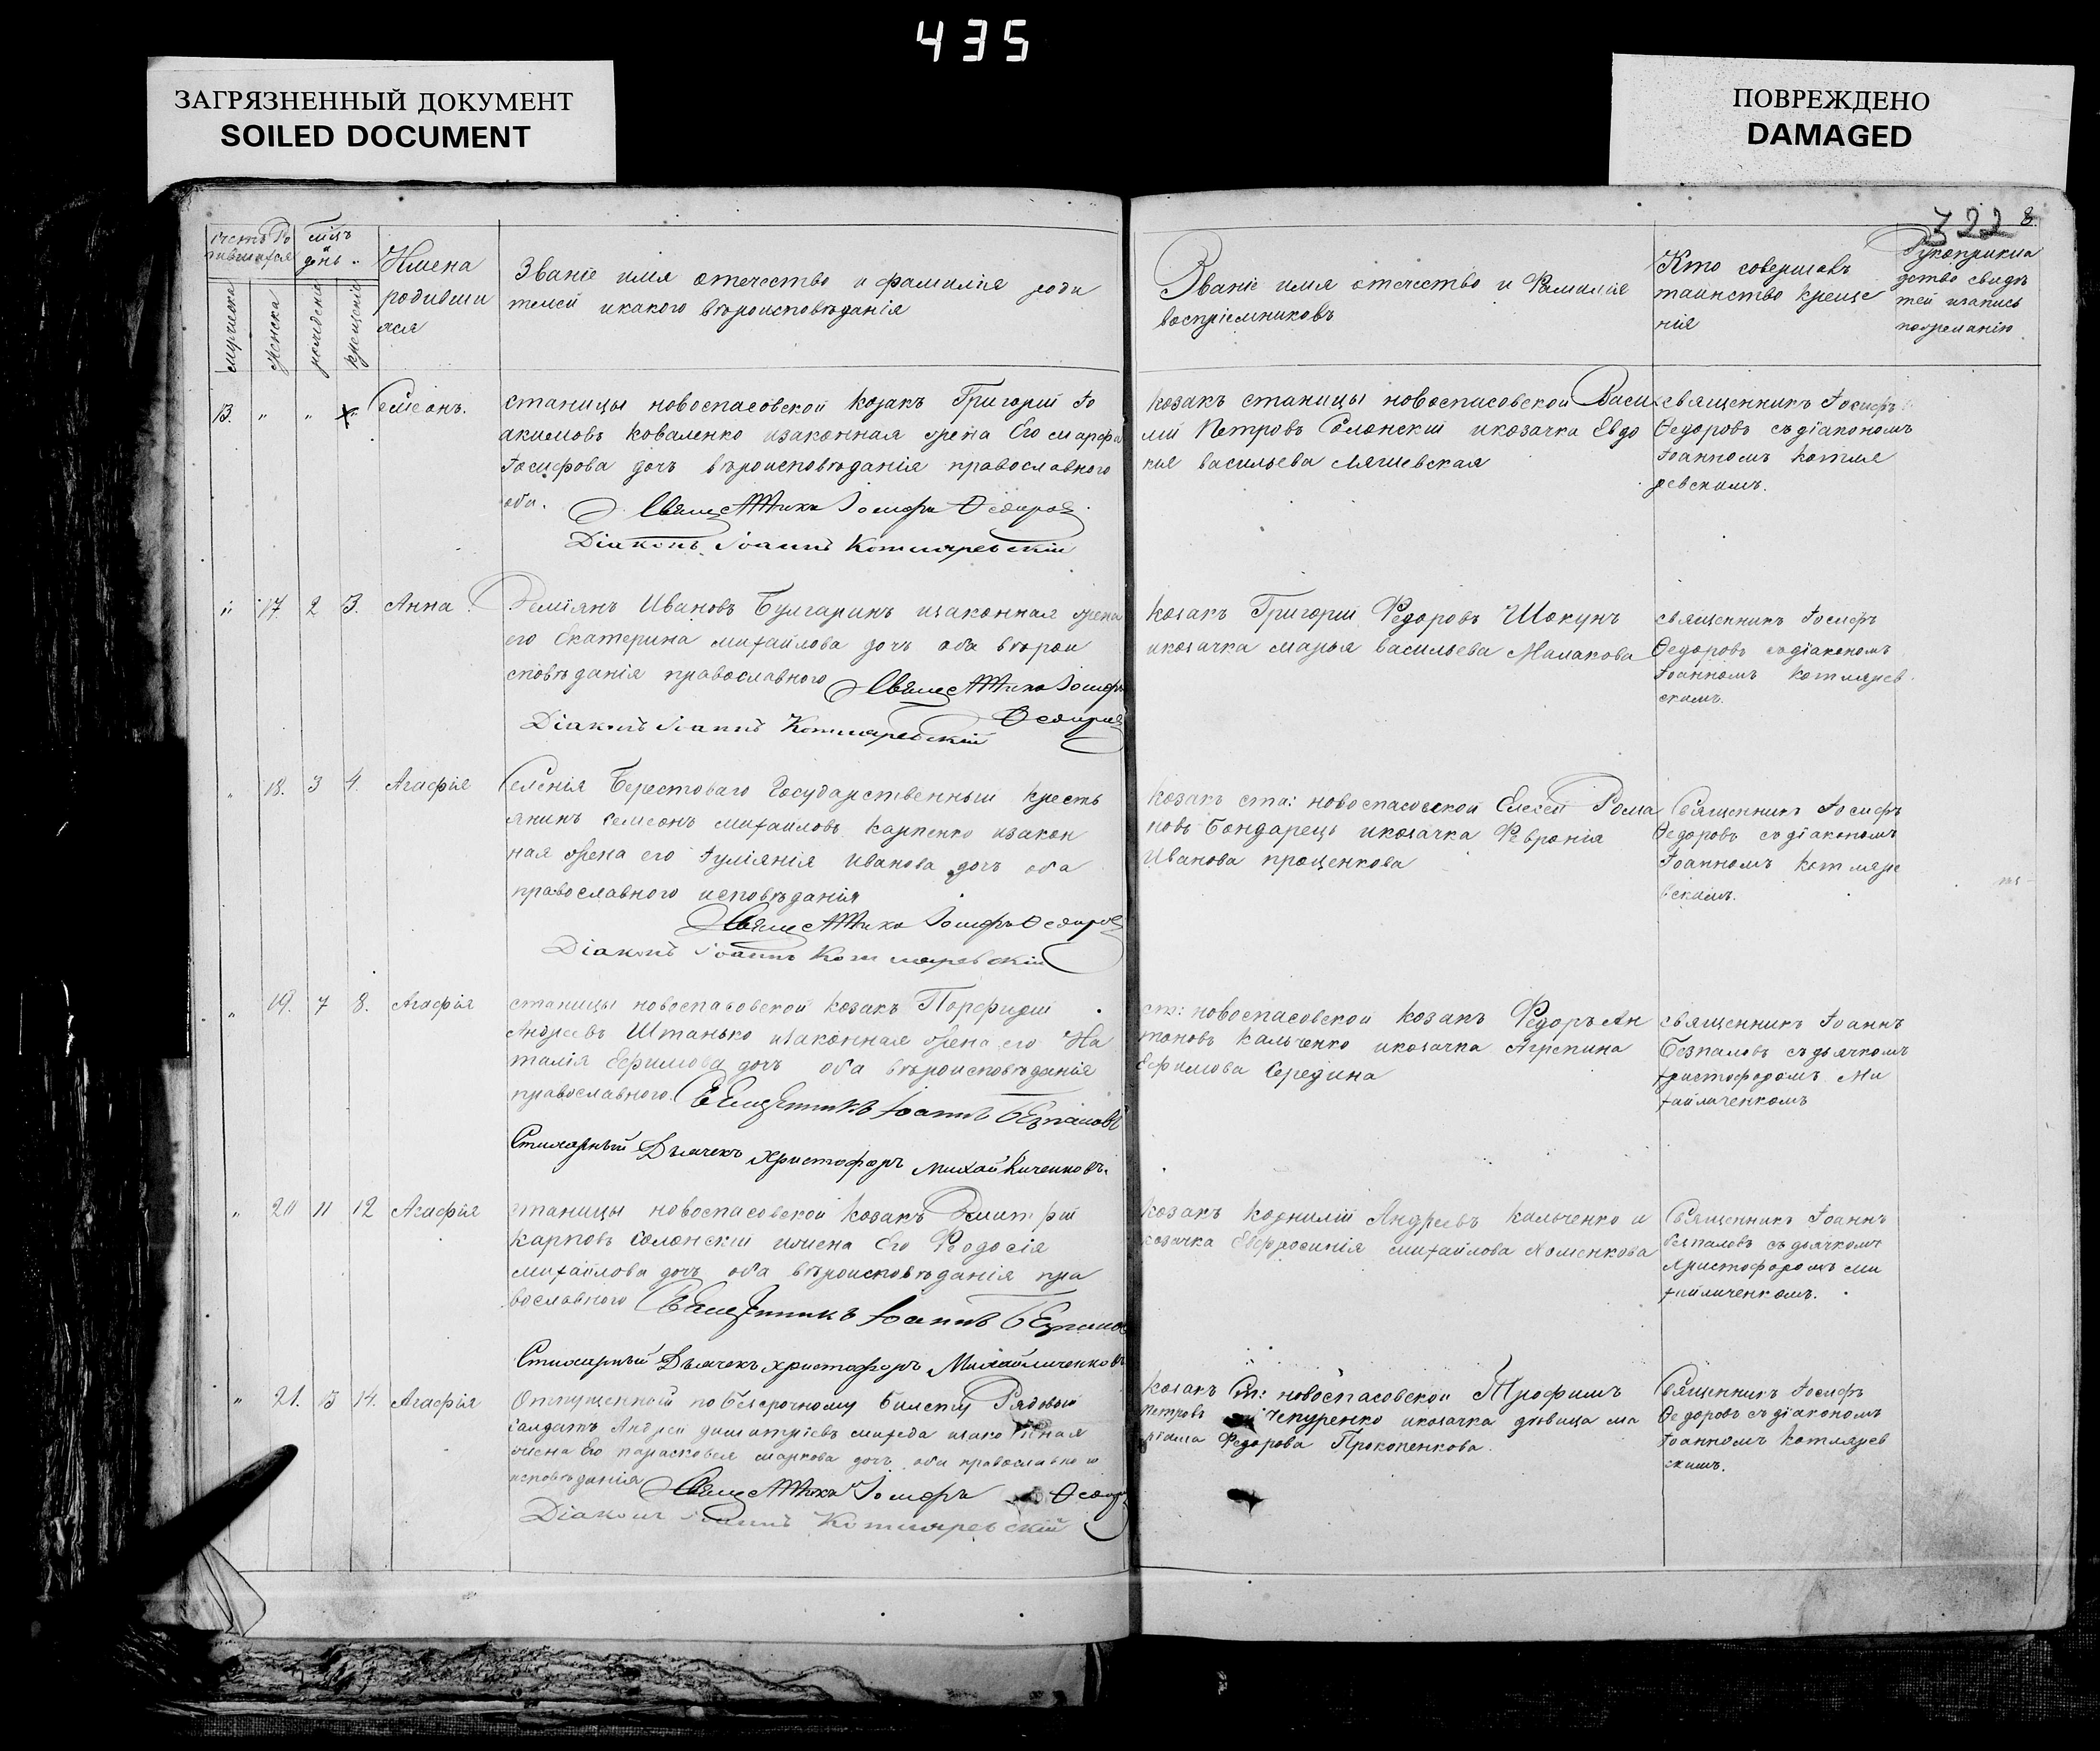 435
ЗАГРЯЗНЕННЫЙ ДОКУМЕНТ
SOILED DOCUMENT
ПОВРЕЖДЕНО
DAMAGED
722 8.
мужеска
женска
рождения
крещенія
день
Имена
родивши
хся
Званіе имя отечество и фамилія роди
телей икакого вѣроисповѣданія
Званіе имя отечество и Фамилія
воспріемниковъ
Кто совершавъ
таинство креще
нія
13. " " Симеонъ.
станицы новоспасовской козакъ Григорій Іо
акимовъ Коваленко изаконная жена Его марфа
Іосифова дочъ вѣроисповѣданія православного
оби.
Священникъ Іосифъ Ѳедоровъ
Діаконъ Іоаннъ Котляревскій
козакъ станицы новоспасовской Васи
лій Петровъ Солонскій икозачка Евдо
кия васильева Ляшевская
священникъ Іосифъ
Ѳедоровъ съдіакономъ
Іоанномъ Котля
ревскимъ.
" 17. 2 3. Анна
Деміянъ Ивановъ Булгаринъ изаконная жена
его Екатерина михайлова дочъ оба вѣрои
сповѣданія православного
Священникъ Іосифъ
Ѳедоровъ
Діаконъ Іоаннъ Котляревскій
Козакъ Григорій Федоровъ Шокунъ
икозачка марья васильева Малакова
священникъ Іосифъ
Ѳедоровъ съдіакономъ
Іоанномъ Котлярев
скимъ.
" 18. 3 4. Агафія
Селенія Берестоваго Государственный кресть
янинъ Симеонъ михайловъ Карпенко изакон
ная жена его Іуліянія иванова дочъ оба
православного исповѣданія
Священникъ Іосифъ Ѳедоровъ
Діаконъ Іоаннъ Котляревскій
Козакъ ста: новоспасовской Елесей Рома
новъ Бондарець икозачка Февронія
Иванова проценкова
Священникъ Іосифъ
Ѳедоровъ съдіакономъ
Іоанномъ Котляре
вскимъ.
" 19. 7 8. Агафія
станицы новоспасовской козакъ Порфирій
Андреевъ Штанько изаконная жена его На
талія Ефимова дочъ оба вѣроисповѣданія
православного.
Священникъ Іоаннъ Безпаловъ
Стихарный Дьячекъ Христофоръ Михайличенковъ.
ст: новоспасовской козакъ Федоръ Ан
тоновъ Кальченко икозачка Агрепина
Ефимова Середина
священникъ Іоаннъ
Безпаловъ съдьячкомъ
Христофоромъ Ми
хайличенкомъ
" 20 11 12 Агафія
станицы новоспасовской козакъ Дмитрій
Карповъ Солонскій ижена Его Феодосія
михайлова дочъ оба вѣроисповѣданія пра
вославного
Священникъ Іоаннъ Безпаловъ
Стихарный Дьячекъ Христофоръ Михайличенковъ
Козакъ Корнилій Андреевъ Кальченко и
козачка Евфросинія михайлова Хоменкова
Священникъ Іоаннъ
Безпаловъ съдьячкомъ
Христофоромъ ми
хайличенкомъ.
" 21. 13 14. Агафія
Отпущенной побезсрочному билету Рядовый
салдатъ Андрей димитріевъ изаконная
жена Его парасковея маркова дочъ оби православного
исповѣданія
Священникъ Іосифъ Ѳедоровъ
Діаконъ Іоаннъ Котляревскій
Козакъ Ст: новоспасовской Трофимъ
петровъ Чепуренко икозачка дѣвица ма
ріама Федорова Прокопенкова.
Священникъ Іосифъ
Ѳедоровъ съдіакономъ
Іоанномъ Котлярев
скимъ.